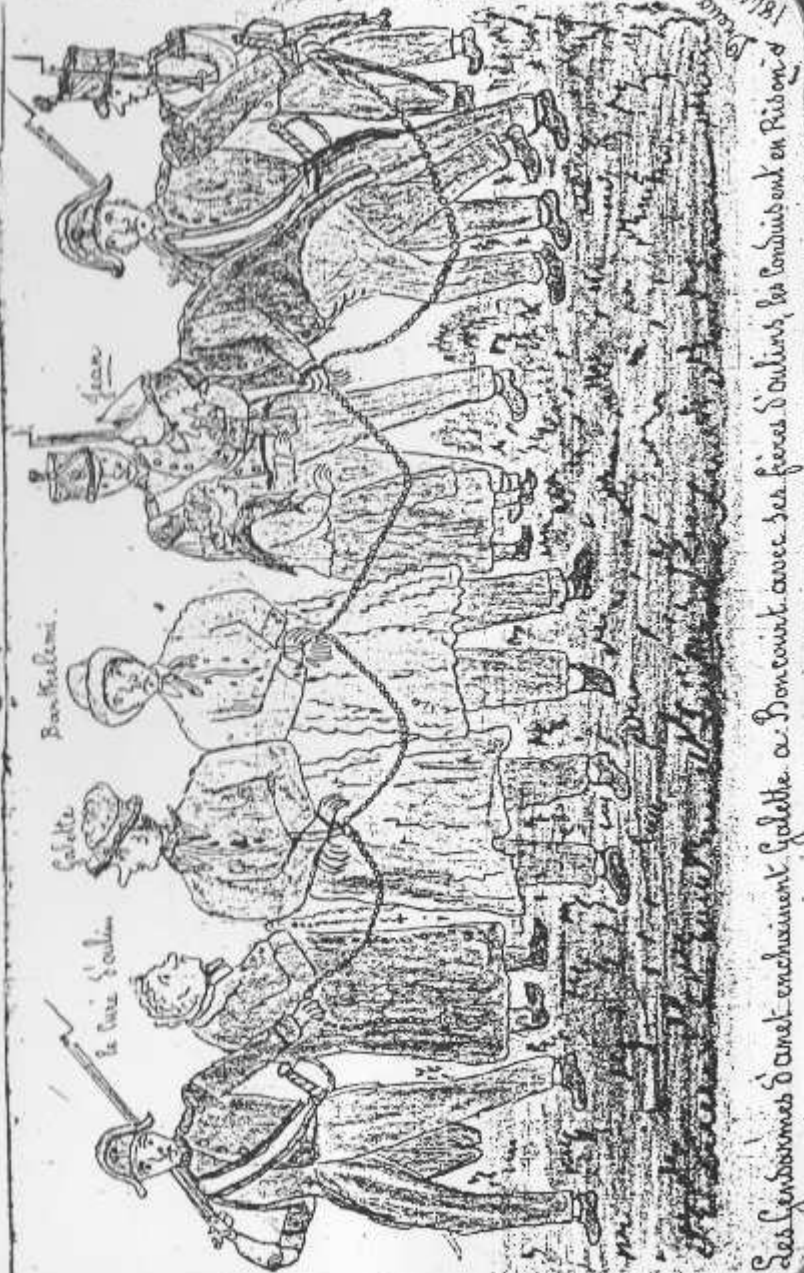 le Curé d'aulin
Galette
Barthelemi.
Jean
Les Gendarmes d'anet enchainent Galette a Boncourt avec ses frères d'aulins, les Conduisent en Prison à